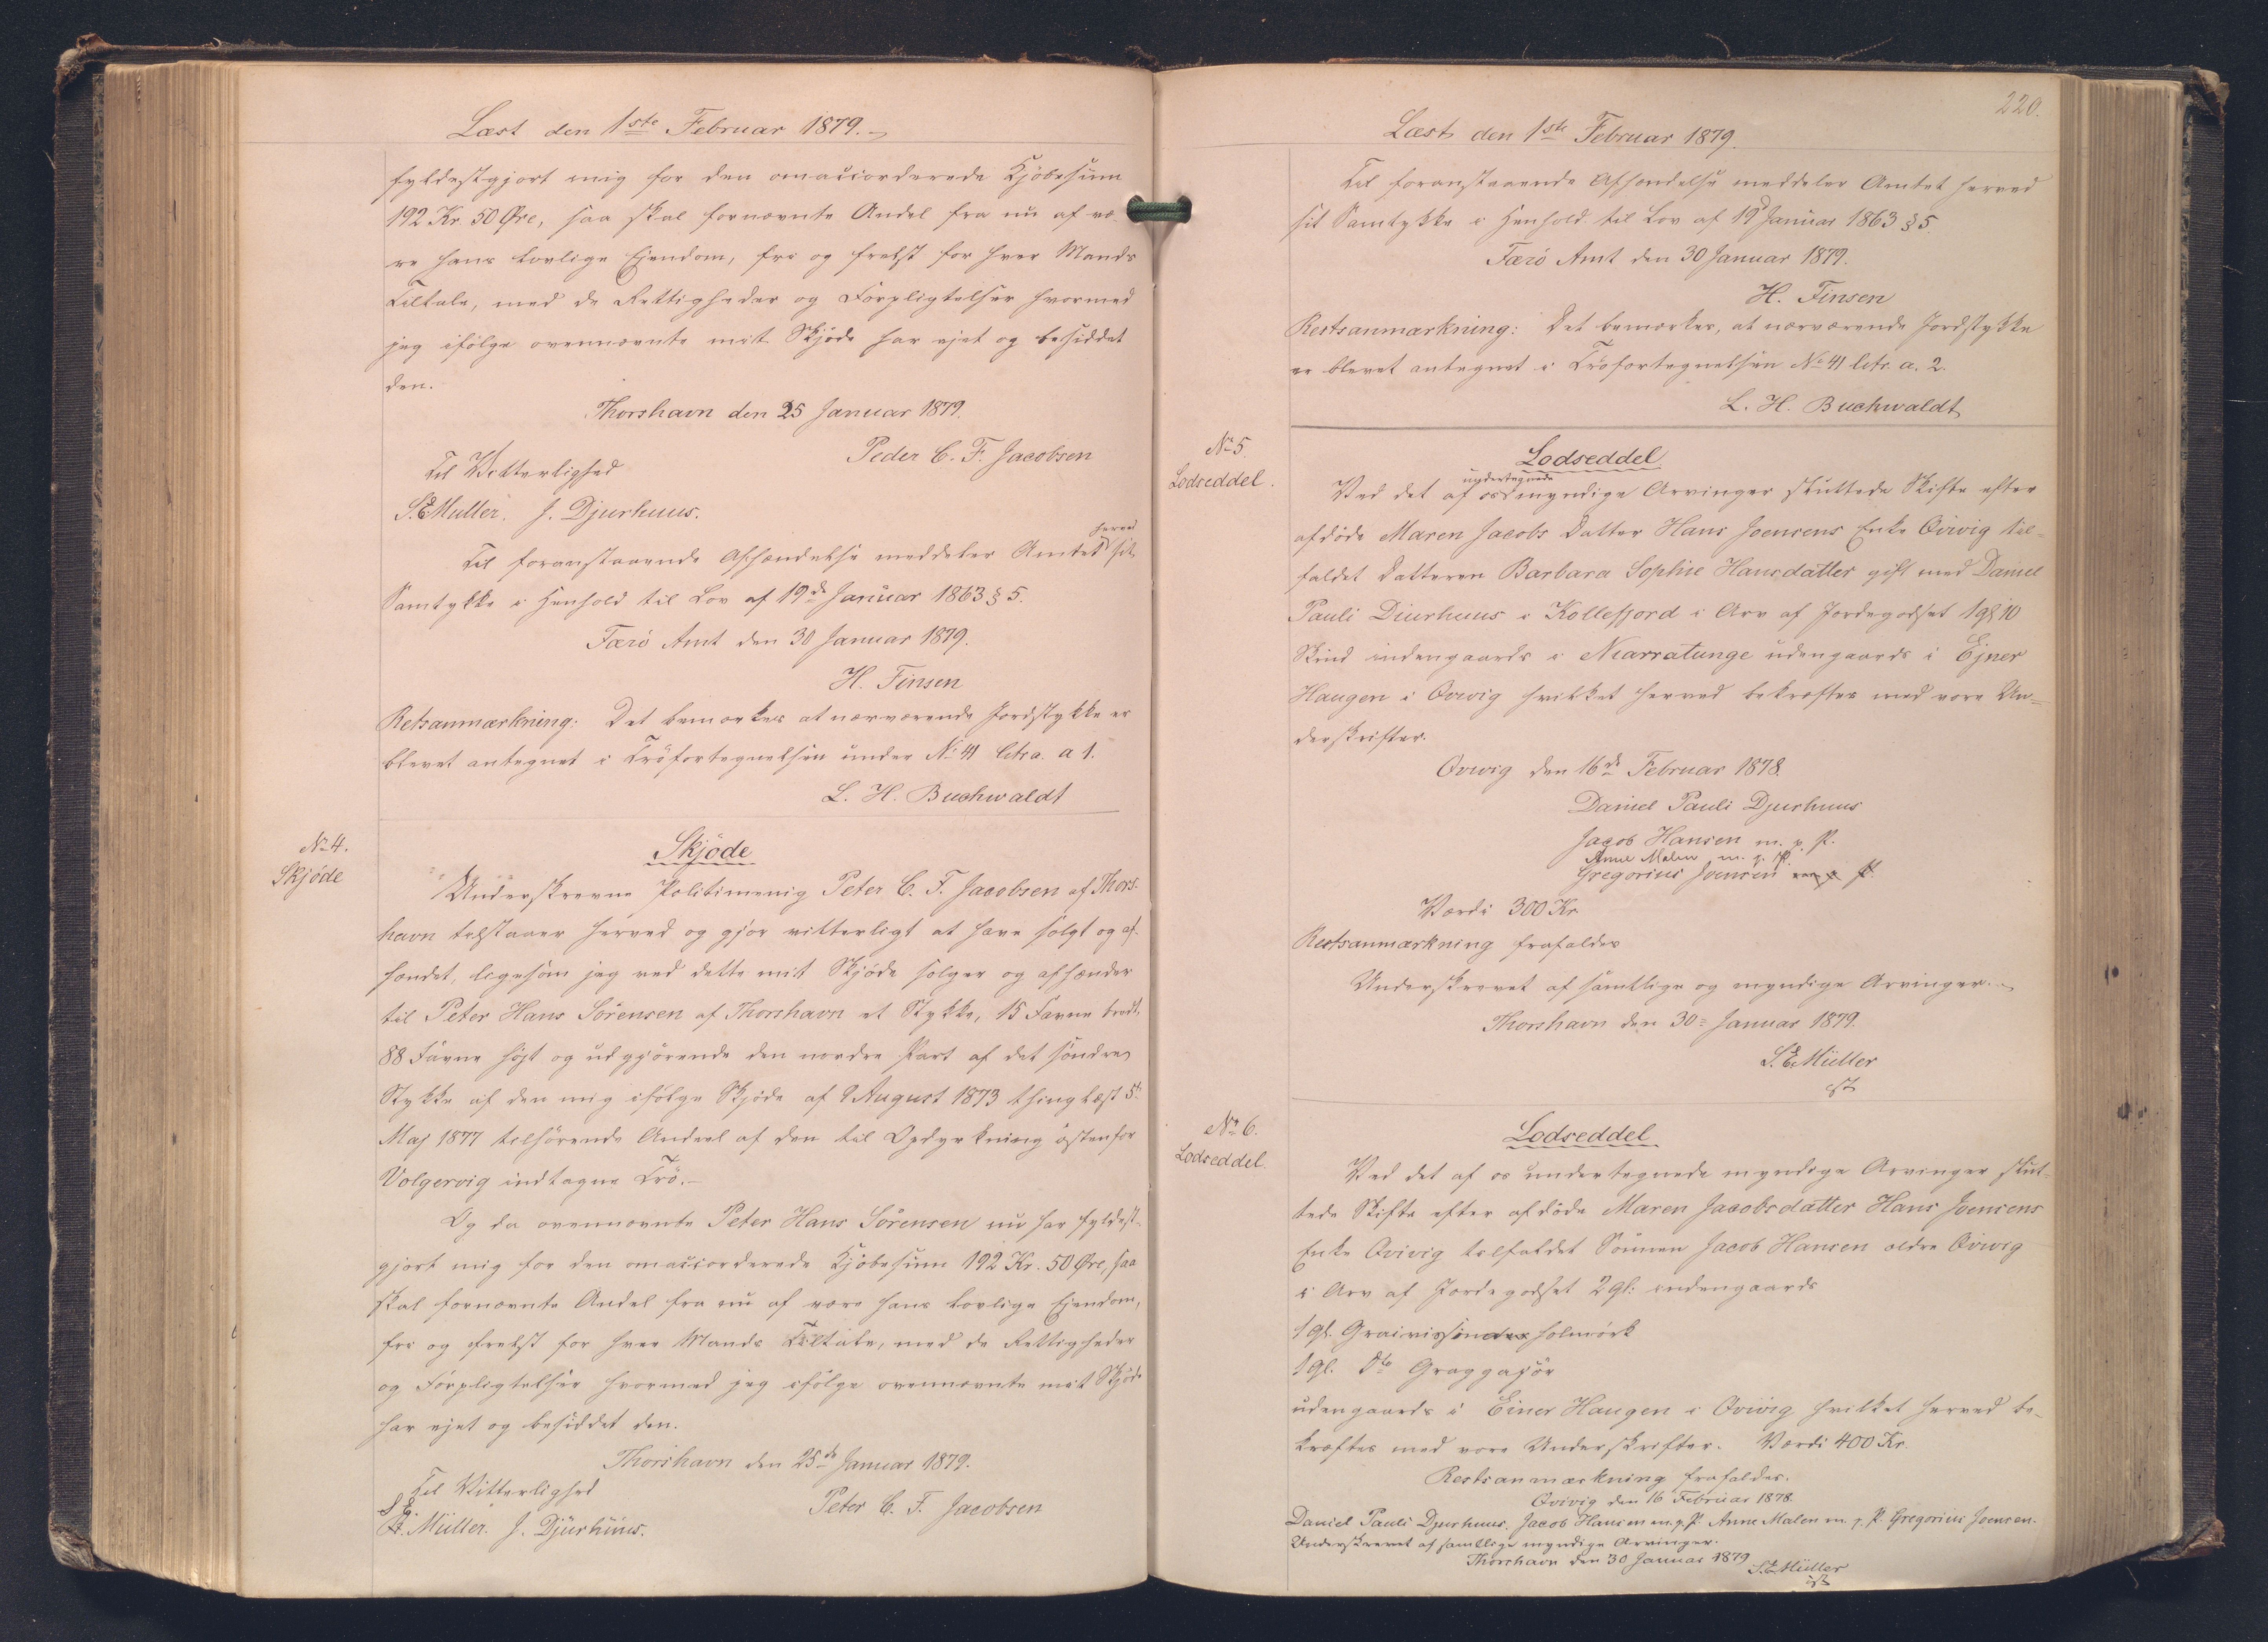 Læst den 1ste Februar 1879.
fyldestgjort mig for den omaccorderede Kjöbesum
192 Kr 50 Øre, saa skal fornævnte Andel fra nu af væ-
re hans lovlige Ejendom, fri og frelst for hver Mands
Tiltale, med de Rettigheder og Forpligtelser hvormed
jeg ifölge ovennævnte mit Skjöde har ejet og besiddet
den.
Thorshavn den 25 Januar 1879.
Peder C. F. Jacobsen
Til Vitterlighed
S. E. Müller. J. Djurhuus.
Til foranstaaende Afhændelse meddeler Amtet herved sit
Samtykke i Henhold til Lov af 19de Januar 1863 § 5.
Færö Amt den 30 Januar 1879.
H. Finsen
Retsanmærkning: Det bemærkes at nærværende Jordstykke er
blevet antegnet i Tröfortegnelsen under No 41 litra. a 1.
L. H. Buchwaldt
No 4.
Skjöde
Skjøde
Underskrevne Politimenig Peter C. F. Jacobsen af Thors-
havn tilstaaer herved og gjör vitterligt at have solgt og af-
hændet, ligesom jeg ved dette mit Skjöde sælger og afhænder
til Peter Hans Sörensen af Thorshavn et Stykke, 15 Favne bredt,
88 Favne höjt og udgjörende den nordre Part af det söndre
Stykke af den mig ifölge Skjöde af 9 August 1873 thinglæst 5te
Maj 1877 tilhörende Andeel af den til Opdyrkning östenfor
Volgervig indtagne Trö.-
Og da ovennævnte Peter Hans Sörensen nu har fyldest-
gjort mig for den omaccorderede Kjöbesum 192 Kr. 50 Øre, saa
skal fornævnte Andel fra nu af være hans lovlige Ejendom,
fri og frelst for hver Mands Tiltale, med de Rettigheder
og Forpligtelser hvormed jeg ifölge ovennævnte mit Skjöde
har ejet og besiddet den.
Thorshavn den 25de Januar 1879.
Til Vitterlighed
Peter C. F. Jacobsen
S. E. Müller. J. Djürhüus.
220.
Læst den 1ste Februar 1879.
Til foranstaaende Afhændelse meddeler Amtet herved
sit Samtykke i Henhold til Lov af 19 Januar 1863 § 5.
Færö Amt den 30 Januar 1879.
H. Finsen
Restsanmærkning: Det bemærkes, at nærværende Jordstykke
er blevet antegnet i Tröfortegnelsen No 41 litr. a. 2.
L. H. Buchwaldt
No 5.
Lodseddel.
Lodseddel
undertegnede
Ved det af os myndige Arvinger sluttede Skifte efter
afdöde Maren Jacobs Datter Hans Joensens Enke Qvivig til-
faldet Datteren Barbara Sophie Hansdatter gift med Daniel
Pauli Diurhuus i Kollefjord i Arv af Jordegodset 1 gl 10
Skind indengaards i Niarratunge udengaards i Ejner
Haugen i Qvivig hvilket herved bekræftes med vore Un-
derskrifter.
Qvivig den 16de Februar 1878.
Daniel Pauli Djurhuus
Jacob Hansen m. p. P.
Anne Malen m. p. P.
Gregorius Joensen
Værdi 300 Kr.
Restsanmærkning frafaldes
Underskrevet af samtlige og myndige Arvinger.
Thorshavn den 30 Januar 1879.
S. E. Müller
cst
No 6.
Lodseddel.
Lodseddel
Ved det af os undertegnede myndige Arvinger slut-
tede Skifte efter afdöde Maren Jacobsdatter Hans Joensens
Enke Qvivig tilfaldet Sönnen Jacob Hansen ældre Qvivig
i Arv af Jordegodset 2 gl: indengaards
1 gl.
1 gl. Dto
udengaards i Einer Haugen i Qvivig hvilket herved be-
kræftes med vore Underskrifter. Værdi 400 Kr.
Restsanmærkning frafaldes.
Qvivig den 16 Februar 1878.
Daniel Pauli Djurhuus. Jacob Hansen m. p. P. Anne Malen m. p. P. Gregorius Joensen.
Underskrevet af samtlige myndige Arvinger.
Thorshavn den 30 Januar 1879
S. E. Müller
cst